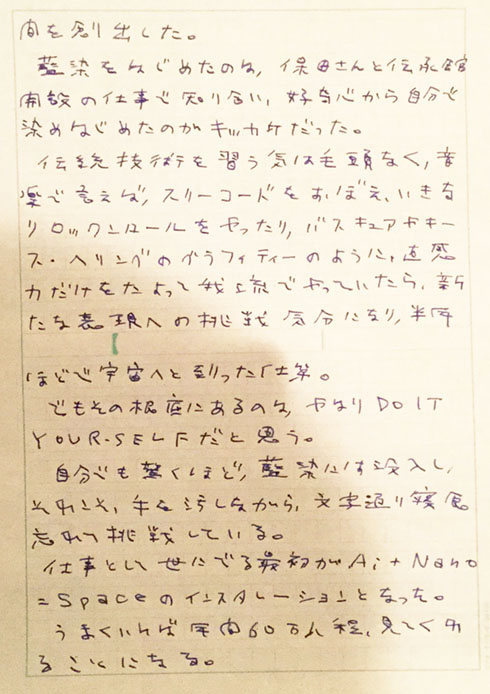 間を創り出した。
藍染をはじめたのは、保田さんと伝承館
開設の仕事で知り合い、好奇心から自分で
染めはじめたのがキッカケだった。
伝統技術を習う気は毛頭なく、音
楽で言えば、スリーコードをおぼえ、いきな
りロックンロールをやったり、バスキュアやキー
ス・ヘリングのグラフィティーのように、直感
力だけをたよって我流でやっていたら、新
たな表現への挑戦気分になり、半年
ほどで宇宙へと到った仕算。
でもその根底にあるのは、やはりDO IT
YOUR-SELFだと思う。
自分でも驚くほど、藍染には没入し、
それこそ、手を汚しながら、文字通り寝食
忘れて挑戦している。
仕事として世にでる最初がAi+Nano
=Spaceのインスタレーションとなった。
うまくいけば年間60万人程、見てくれ
ることになる。